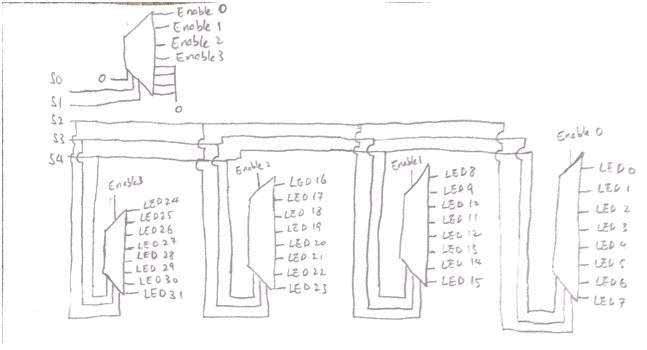 Enable 0
Enable 1
Enable 2
Enable 3
S0
0
S1
0
S2
S3
S4
Enable3
LED24
LED25
LED26
LED27
LED28
LED29
LED30
LED31
Enable 2
LED16
LED17
LED18
LED19
LED20
LED21
LED22
LED23
Enable 1
LED8
LED9
LED10
LED11
LED12
LED13
LED14
LED15
Enable 0
LED 0
LED 1
LED 2
LED 3
LED 4
LED 5
LED 6
LED 7